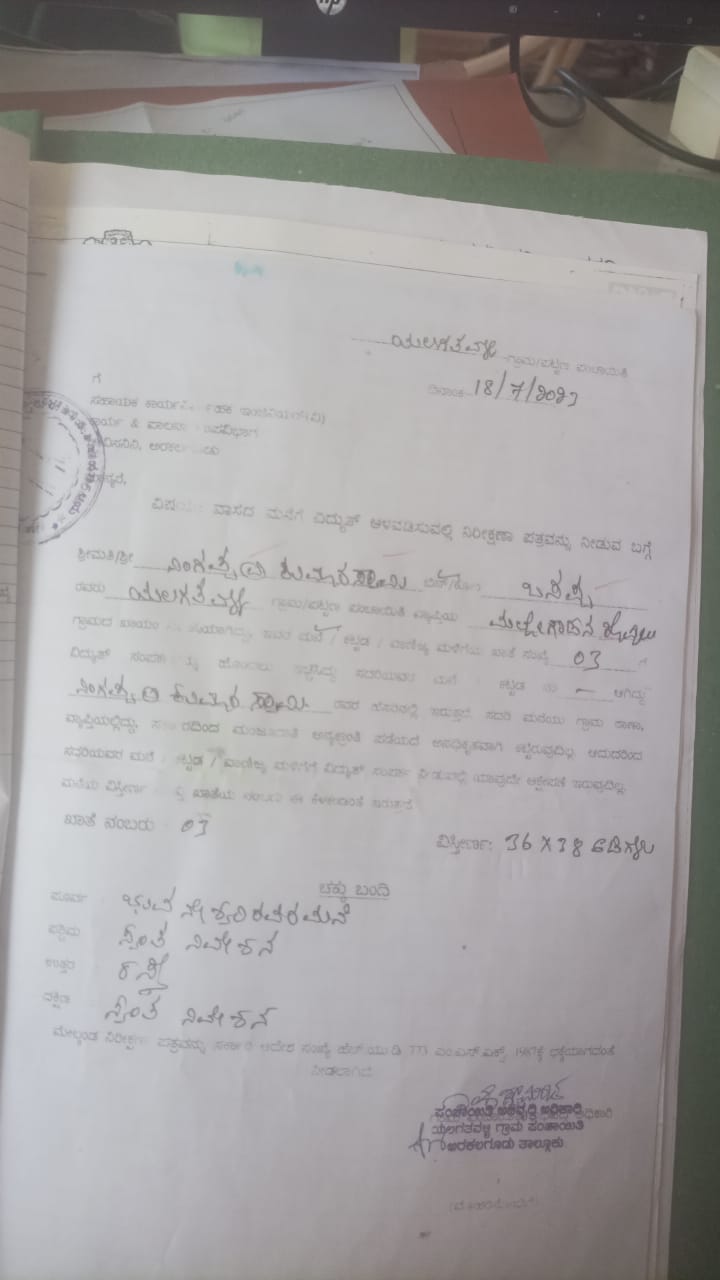 hp
ಯಲಗತವಳ್ಳಿ ಗ್ರಾಮ/ಪಟ್ಟಣ ಪಂಚಾಯಿತಿ
ದಿನಾಂಕ: 18/7/2023
ಗೆ
ಸಹಾಯಕ ಕಾರ್ಯನಿರ್ವಾಹಕ ಇಂಜಿನಿಯರ್(ವಿ)
ಕಾರ್ಯ & ಪಾಲನಾ ಉಪವಿಭಾಗ
ಅರಕಲಗೂಡು
ವಿಷಯ: ವಾಸದ ಮನೆಗೆ ವಿದ್ಯುತ್ ಅಳವಡಿಸುವಲ್ಲಿ ನಿರೀಕ್ಷಣಾ ಪತ್ರವನ್ನು ನೀಡುವ ಬಗ್ಗೆ
ಶ್ರೀಮತಿ/ಶ್ರೀ ನಿಂಗಪ್ಪ @ ಕುಮಾರಸ್ವಾಮಿ ಬಿನ್/ಕೋಂ ಬಸಪ್ಪ
ರವರು ಯಲಗತವಳ್ಳಿ ಗ್ರಾಮ/ಪಟ್ಟಣ ಪಂಚಾಯಿತಿ ವ್ಯಾಪ್ತಿಯ
ಗ್ರಾಮದ ಖಾಯಂ ಇವರ ಮನೆ / ಕಟ್ಟಡ / ವಾಣಿಜ್ಯ ಮಳಿಗೆಯ ಖಾತೆ ಸಂಖ್ಯೆ 03 ಗೆ
ವಿದ್ಯುತ್ ಸಂಪರ್ಕ ಹೊಂದಲು ಇಚ್ಛಿಸಿದ್ದು ಸದರಿಯವರ ಮನೆ / ಕಟ್ಟಡ ನಂ – ಆಗಿದ್ದು
ನಿಂಗಪ್ಪ @ ಕುಮಾರಸ್ವಾಮಿ ರವರ ಹೆಸರಿನಲ್ಲಿ ಇರುತ್ತದೆ. ಸದರಿ ಮನೆಯು ಗ್ರಾಮ ಠಾಣಾ,
ವ್ಯಾಪ್ತಿಯಲ್ಲಿದ್ದು, ಸರ್ಕಾರದಿಂದ ಮಂಜೂರಾತಿ ಪಡೆಯದೆ ಅನಧಿಕೃತವಾಗಿ ಕಟ್ಟಿರುವುದಿಲ್ಲ ಆದುದರಿಂದ
ಸದರಿಯವರ ಮನೆ / ಕಟ್ಟಡ / ವಾಣಿಜ್ಯ ಮಳಿಗೆಗೆ ವಿದ್ಯುತ್ ಸಂಪರ್ಕ ನೀಡುವಲ್ಲಿ ಯಾವುದೇ ಆಕ್ಷೇಪಣೆ ಇರುವುದಿಲ್ಲ.
ಮನೆಯ ವಿಸ್ತೀರ್ಣ ಮತ್ತು ಖಾತೆಯ ನಂಬರು ಈ ಕೆಳಕಂಡಂತೆ ಇರುತ್ತದೆ
ಖಾತೆ ನಂಬರು : 03 ವಿಸ್ತೀರ್ಣ: 36 X 38 ಅಡಿಗಳು
ಚಕ್ಕುಬಂದಿ
ಪೂರ್ವ ಭುವನೇಶ್ವರಿರವರ ಮನೆ
ಪಶ್ಚಿಮ ಸ್ವಂತ ನಿವೇಶನ
ಉತ್ತರ ರಸ್ತೆ
ದಕ್ಷಿಣ ಸ್ವಂತ ನಿವೇಶನ
ಮೇಲ್ಕಂಡ ನಿರೀಕ್ಷಣಾ ಪತ್ರವನ್ನು ಸರ್ಕಾರಿ ಆದೇಶ ಸಂಖ್ಯೆ ಹೆಚ್.ಯು.ಡಿ 773 ಎಂ.ಎನ್.ಎಕ್ಸ್. 1987ಕ್ಕೆ ಧಕ್ಕೆಯಾಗದಂತೆ
ನೀಡಲಾಗಿದೆ.
ಪಂಚಾಯಿತಿ ಅಭಿವೃದ್ಧಿ ಅಧಿಕಾರಿ
ಯಲಗತವಳ್ಳಿ ಗ್ರಾಮ ಪಂಚಾಯಿತಿ
ಅರಕಲಗೂಡು ತಾಲ್ಲೂಕು